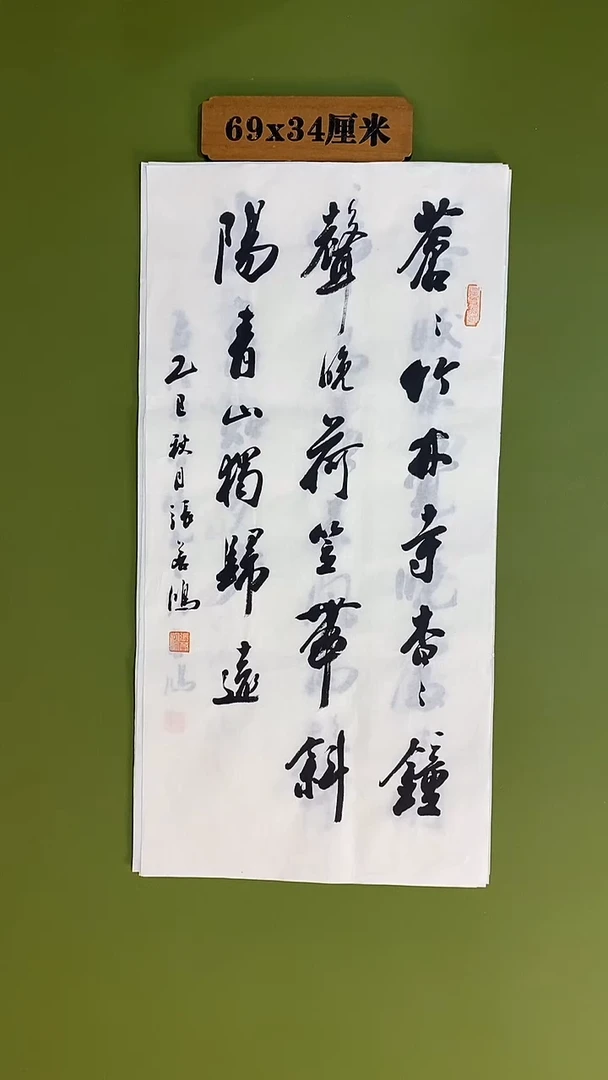 69x34厘米
蒼〻竹林寺杳〻鐘
聲晚荷笠帶斜
陽青山獨歸遠
乙巳秋月張若鴻